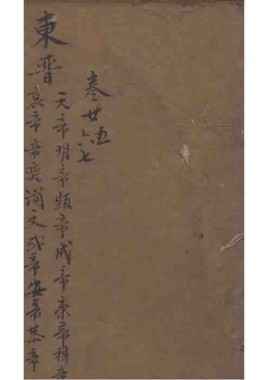 卷廿伍六七
東晉
元帝明帝帝成帝康帝穆帝
哀帝帝奕簡文武帝安帝恭帝